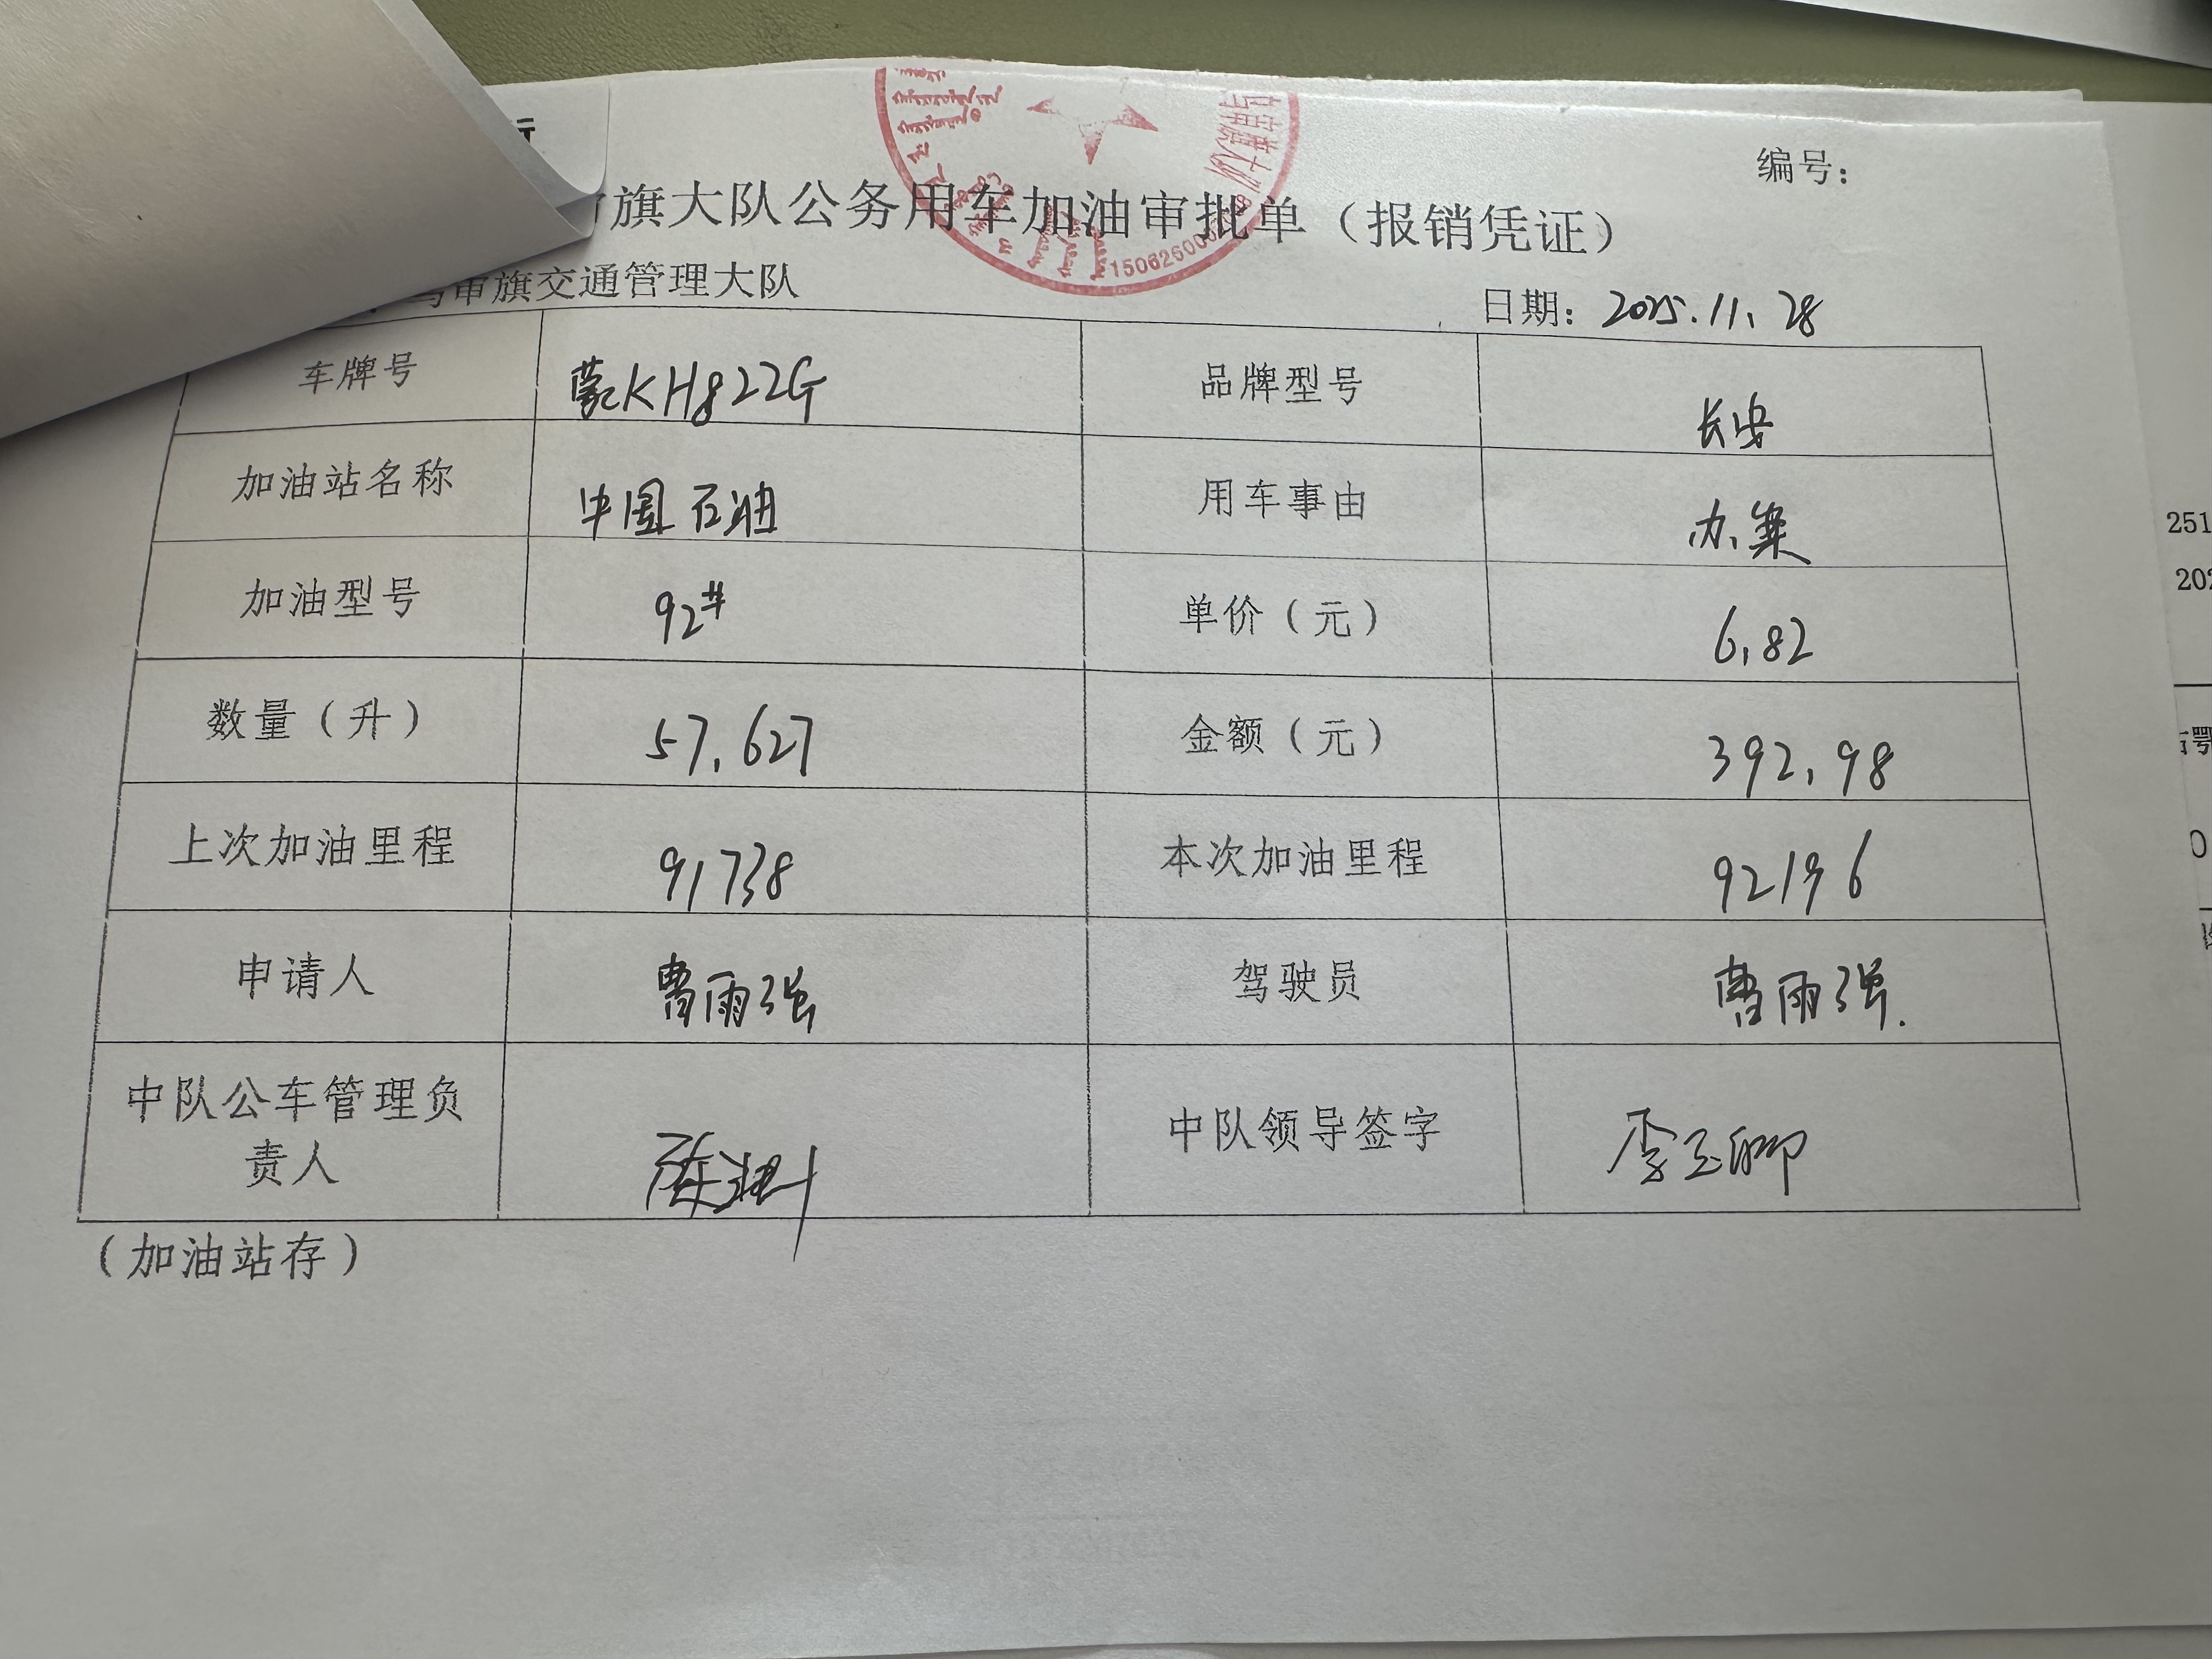 编号：
旗大队公务用车加油审批单（报销凭证）
乌审旗交通管理大队 日期：2025.11.28
车牌号 蒙KH822G 品牌型号 长安
加油站名称 中国石油 用车事由 办案
加油型号 92# 单价（元） 6.82
数量（升） 57.627 金额（元） 392.98
上次加油里程 91738 本次加油里程 92196
申请人 曹雨强 驾驶员 曹雨强
中队公车管理负责人 中队领导签字
（加油站存）
251
202